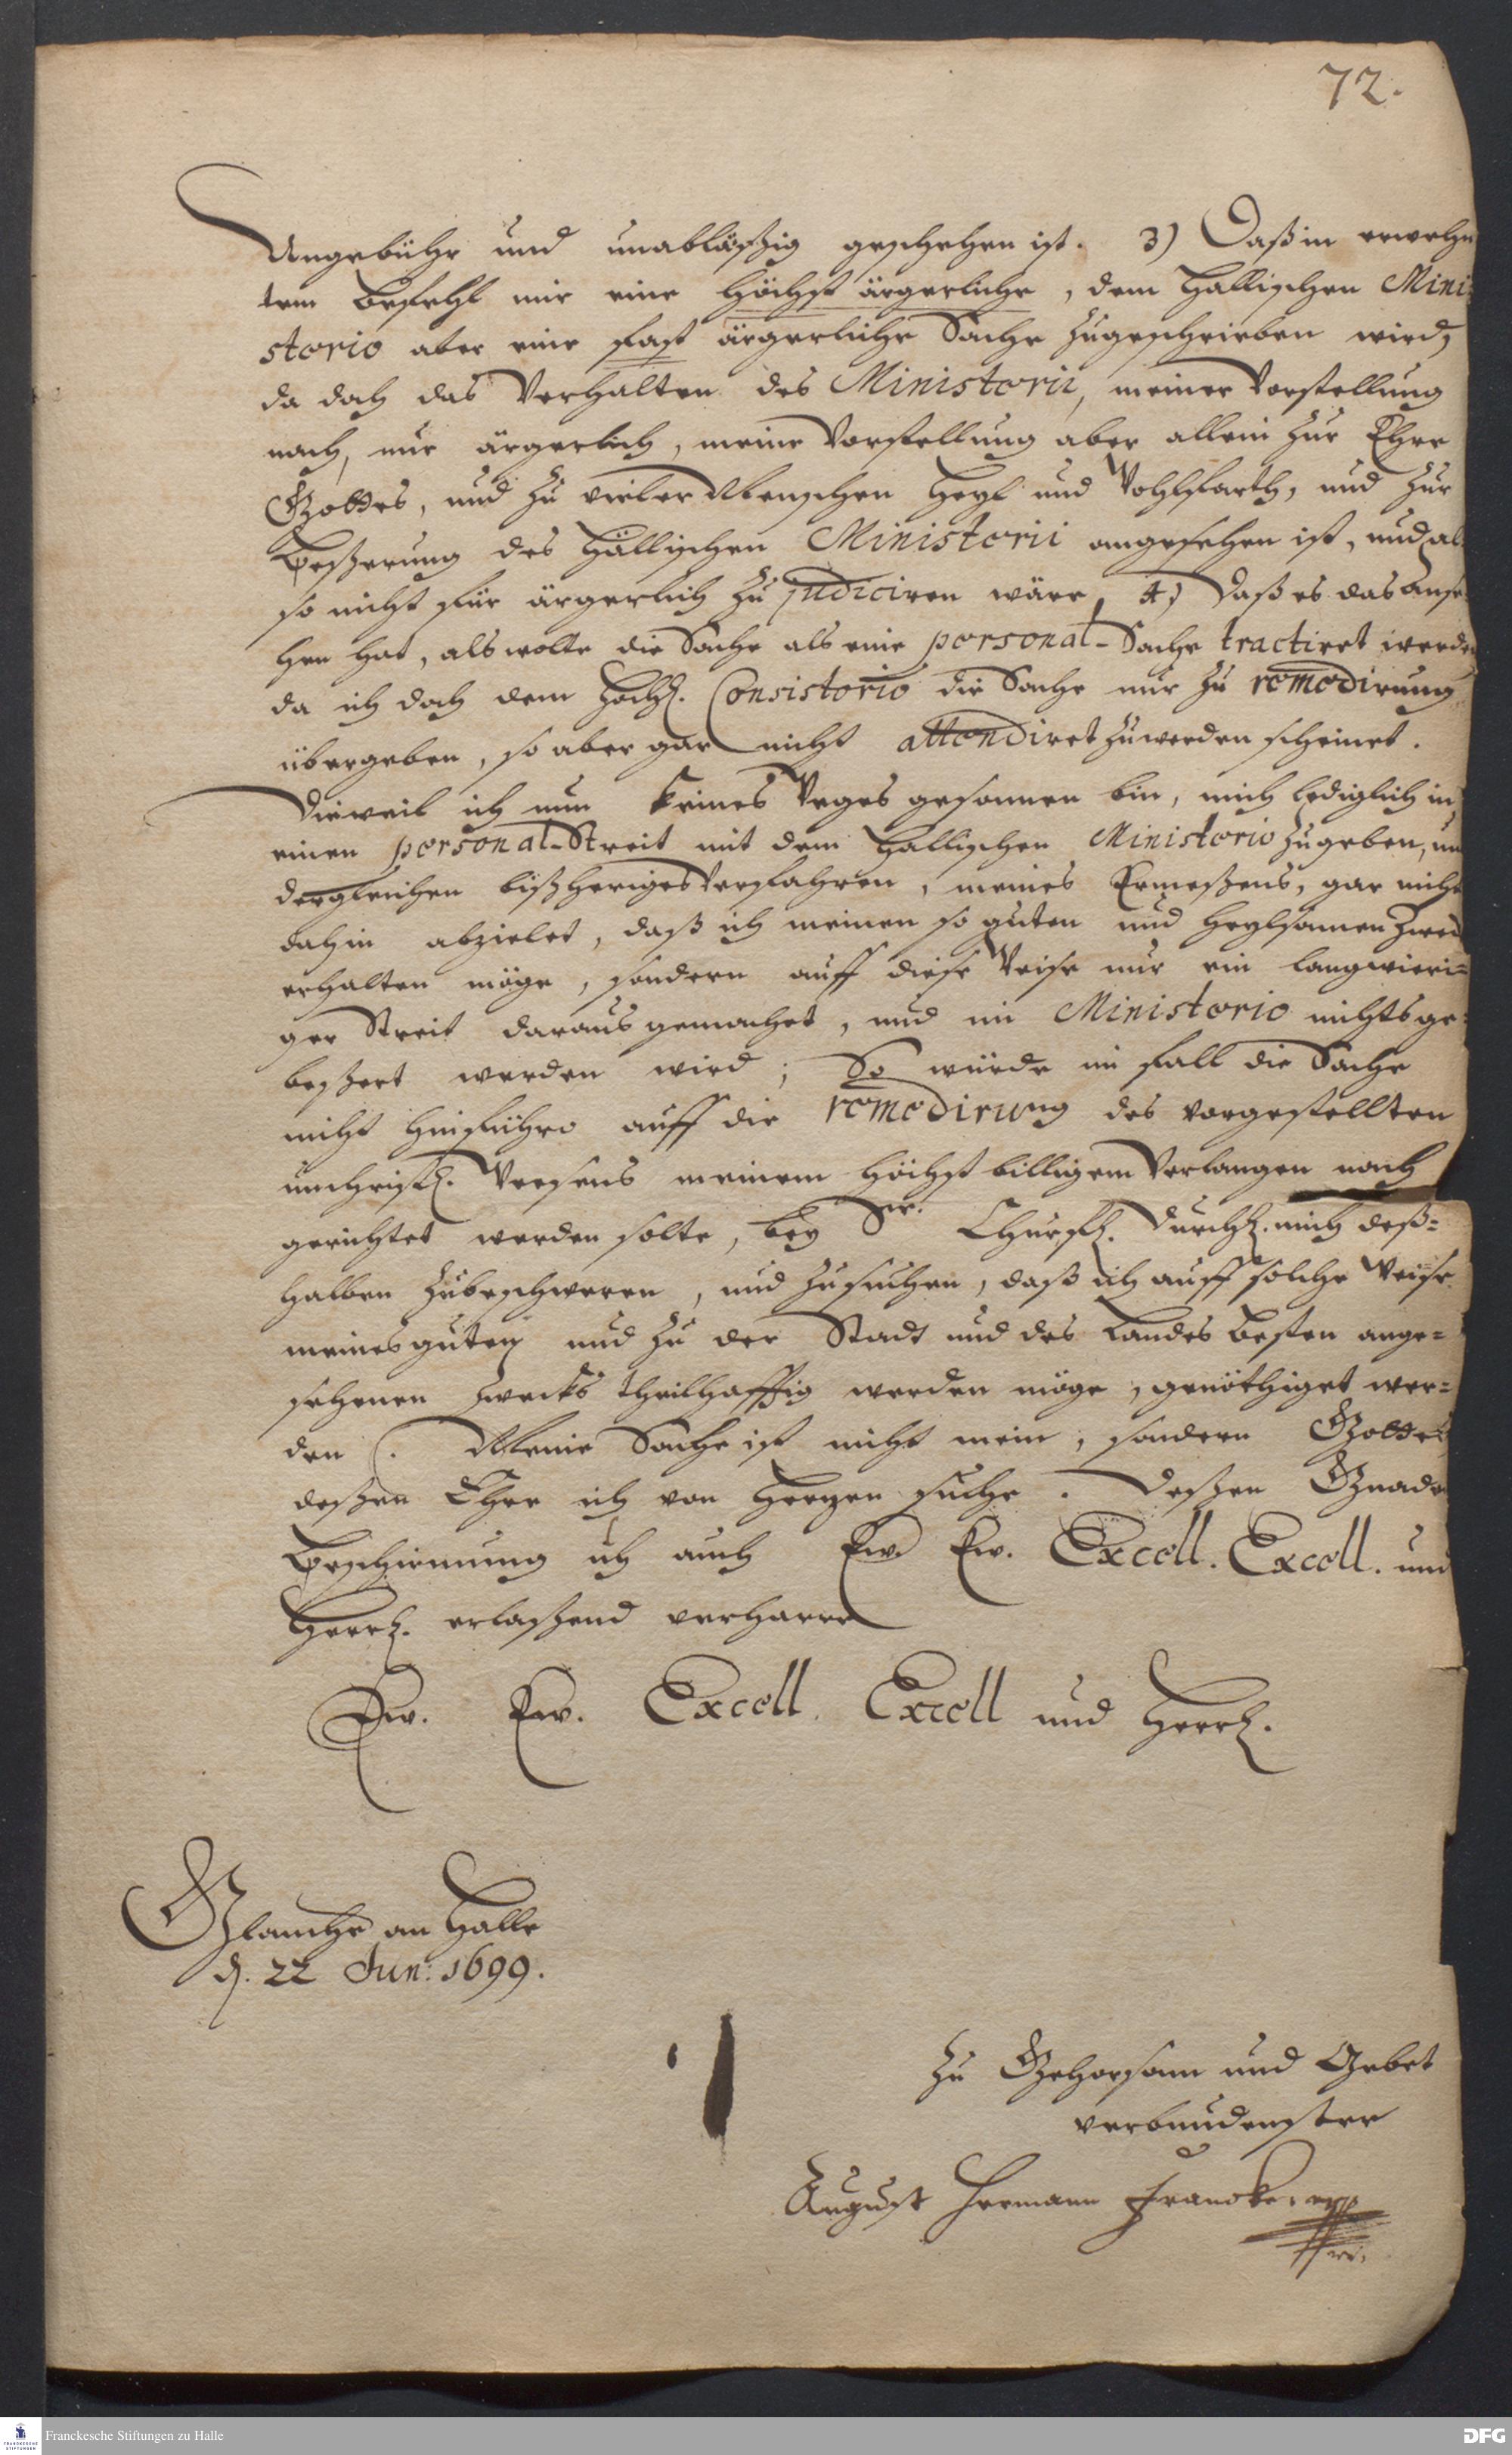 72.
Ungebühr und unabläßig geschehen ist. 3) Daß in erwehn
tem Befehl mir eine höchst ärgerliche, dem Hallischen Mini
sterio aber eine fast ärgerliche Sache zugeschrieben wird,
da doch das Verhalten des Ministerii, meiner Vorstellung
nach, nur ärgerlich, meine Vorstellung aber allein zur Ehre
Gottes, und zu vieler Menschen Heyl und Wohlfarth, und zur
Beßerung des Hällischen Ministerii angesehen ist, und al
so nicht für ärgerlich zu judiciren wäre. 4) Daß es das Anse
hen hat, als wolte die Sache als eine personal-Sache tractiret werden
da ich doch dem Hochl. Consistorio die Sache nur zu remedirung
übergeben, so aber gar nicht attendiret zu werden scheinet.
Dieweil ich nun keines Weges gesonnen bin, mich lediglich in
einen personal-Streit mit dem Hallischen Ministerio zugeben, un
dergleichen bißheriges Verfahren, meines Ermeßens, gar nicht
dahin abzielet, daß ich meinen so guten und heylsamen Zweck
erhalten möge, sondern auff diese Weise nur ein langwieri=
ger Streit daraus gemachet, und im Ministerio nichts ge=
beßert werden wird; So würde im fall die Sache
nicht hinführo auff die remedirung des vorgestellten
unchristl. Weesens meinem höchst billigem Verlangen nach
gerichtet werden solte, bey Sr. Churfl. Durchl. mich deß=
halben zubeschweren, und zusuchen, daß ich auff solche Weise
meines guten und zu der Stadt und des Landes Besten ange=
sehenen Zwecks theilhafftig werden möge, genöthiget wer=
den. Meine Sache ist nicht mein, sondern Gottes
deßen Ehre ich von Hertzen suche. Deßen Gnaden
Beschirmung ich auch Ew. Ew. Excell. Excell. und
Herrl. erlaßend verharre
Ew. Ew. Excell. Excell und Herrl.
Glaucha an Halle
d. 22 Jun: 1699.
Zu Gehorsam und Gebet
verbundenster
August Hermann Francke. mpp
Franckesche Stiftungen zu Halle
DFG